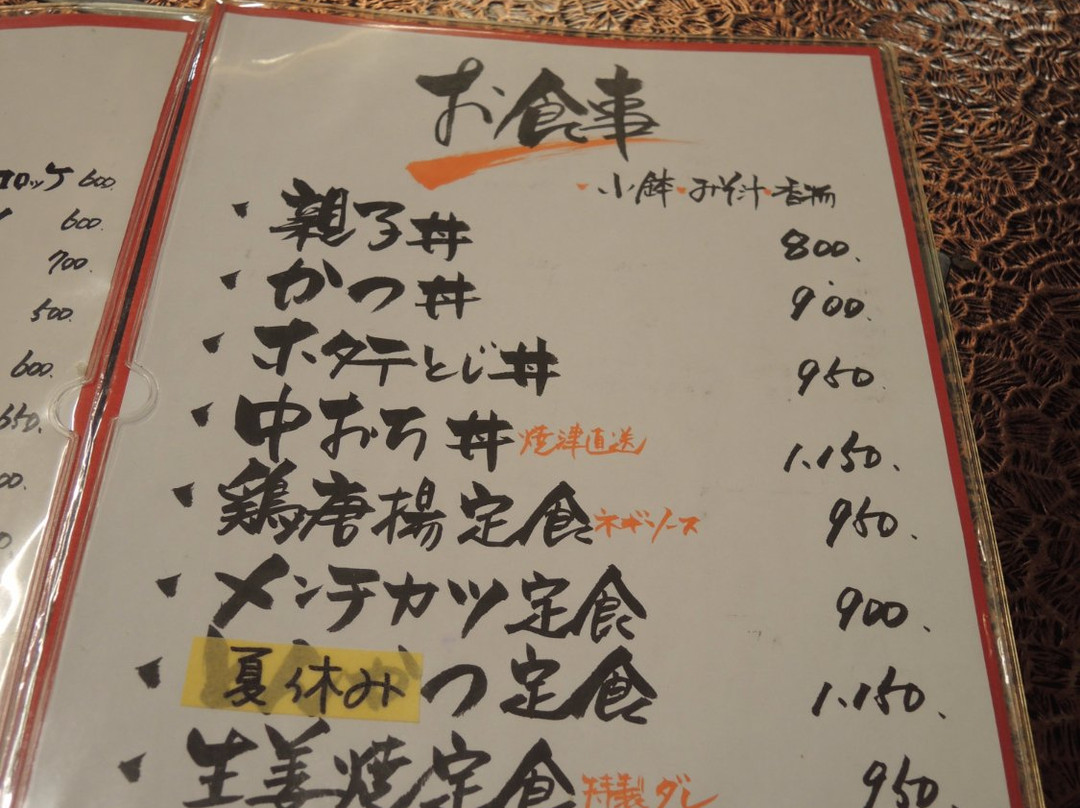 コロッケ 600.
600.
700.
500.
600.
650.
お食事
小鉢・みそ汁・香物
親子丼 800.
かつ丼 900.
ホタテとじ丼 950.
中おち丼 焼津直送 1.150.
鶏唐揚定食 ネギソース 950.
メンチカツ定食 900.
夏休み つ定食 1.150.
生姜焼定食 特製ダレ 950